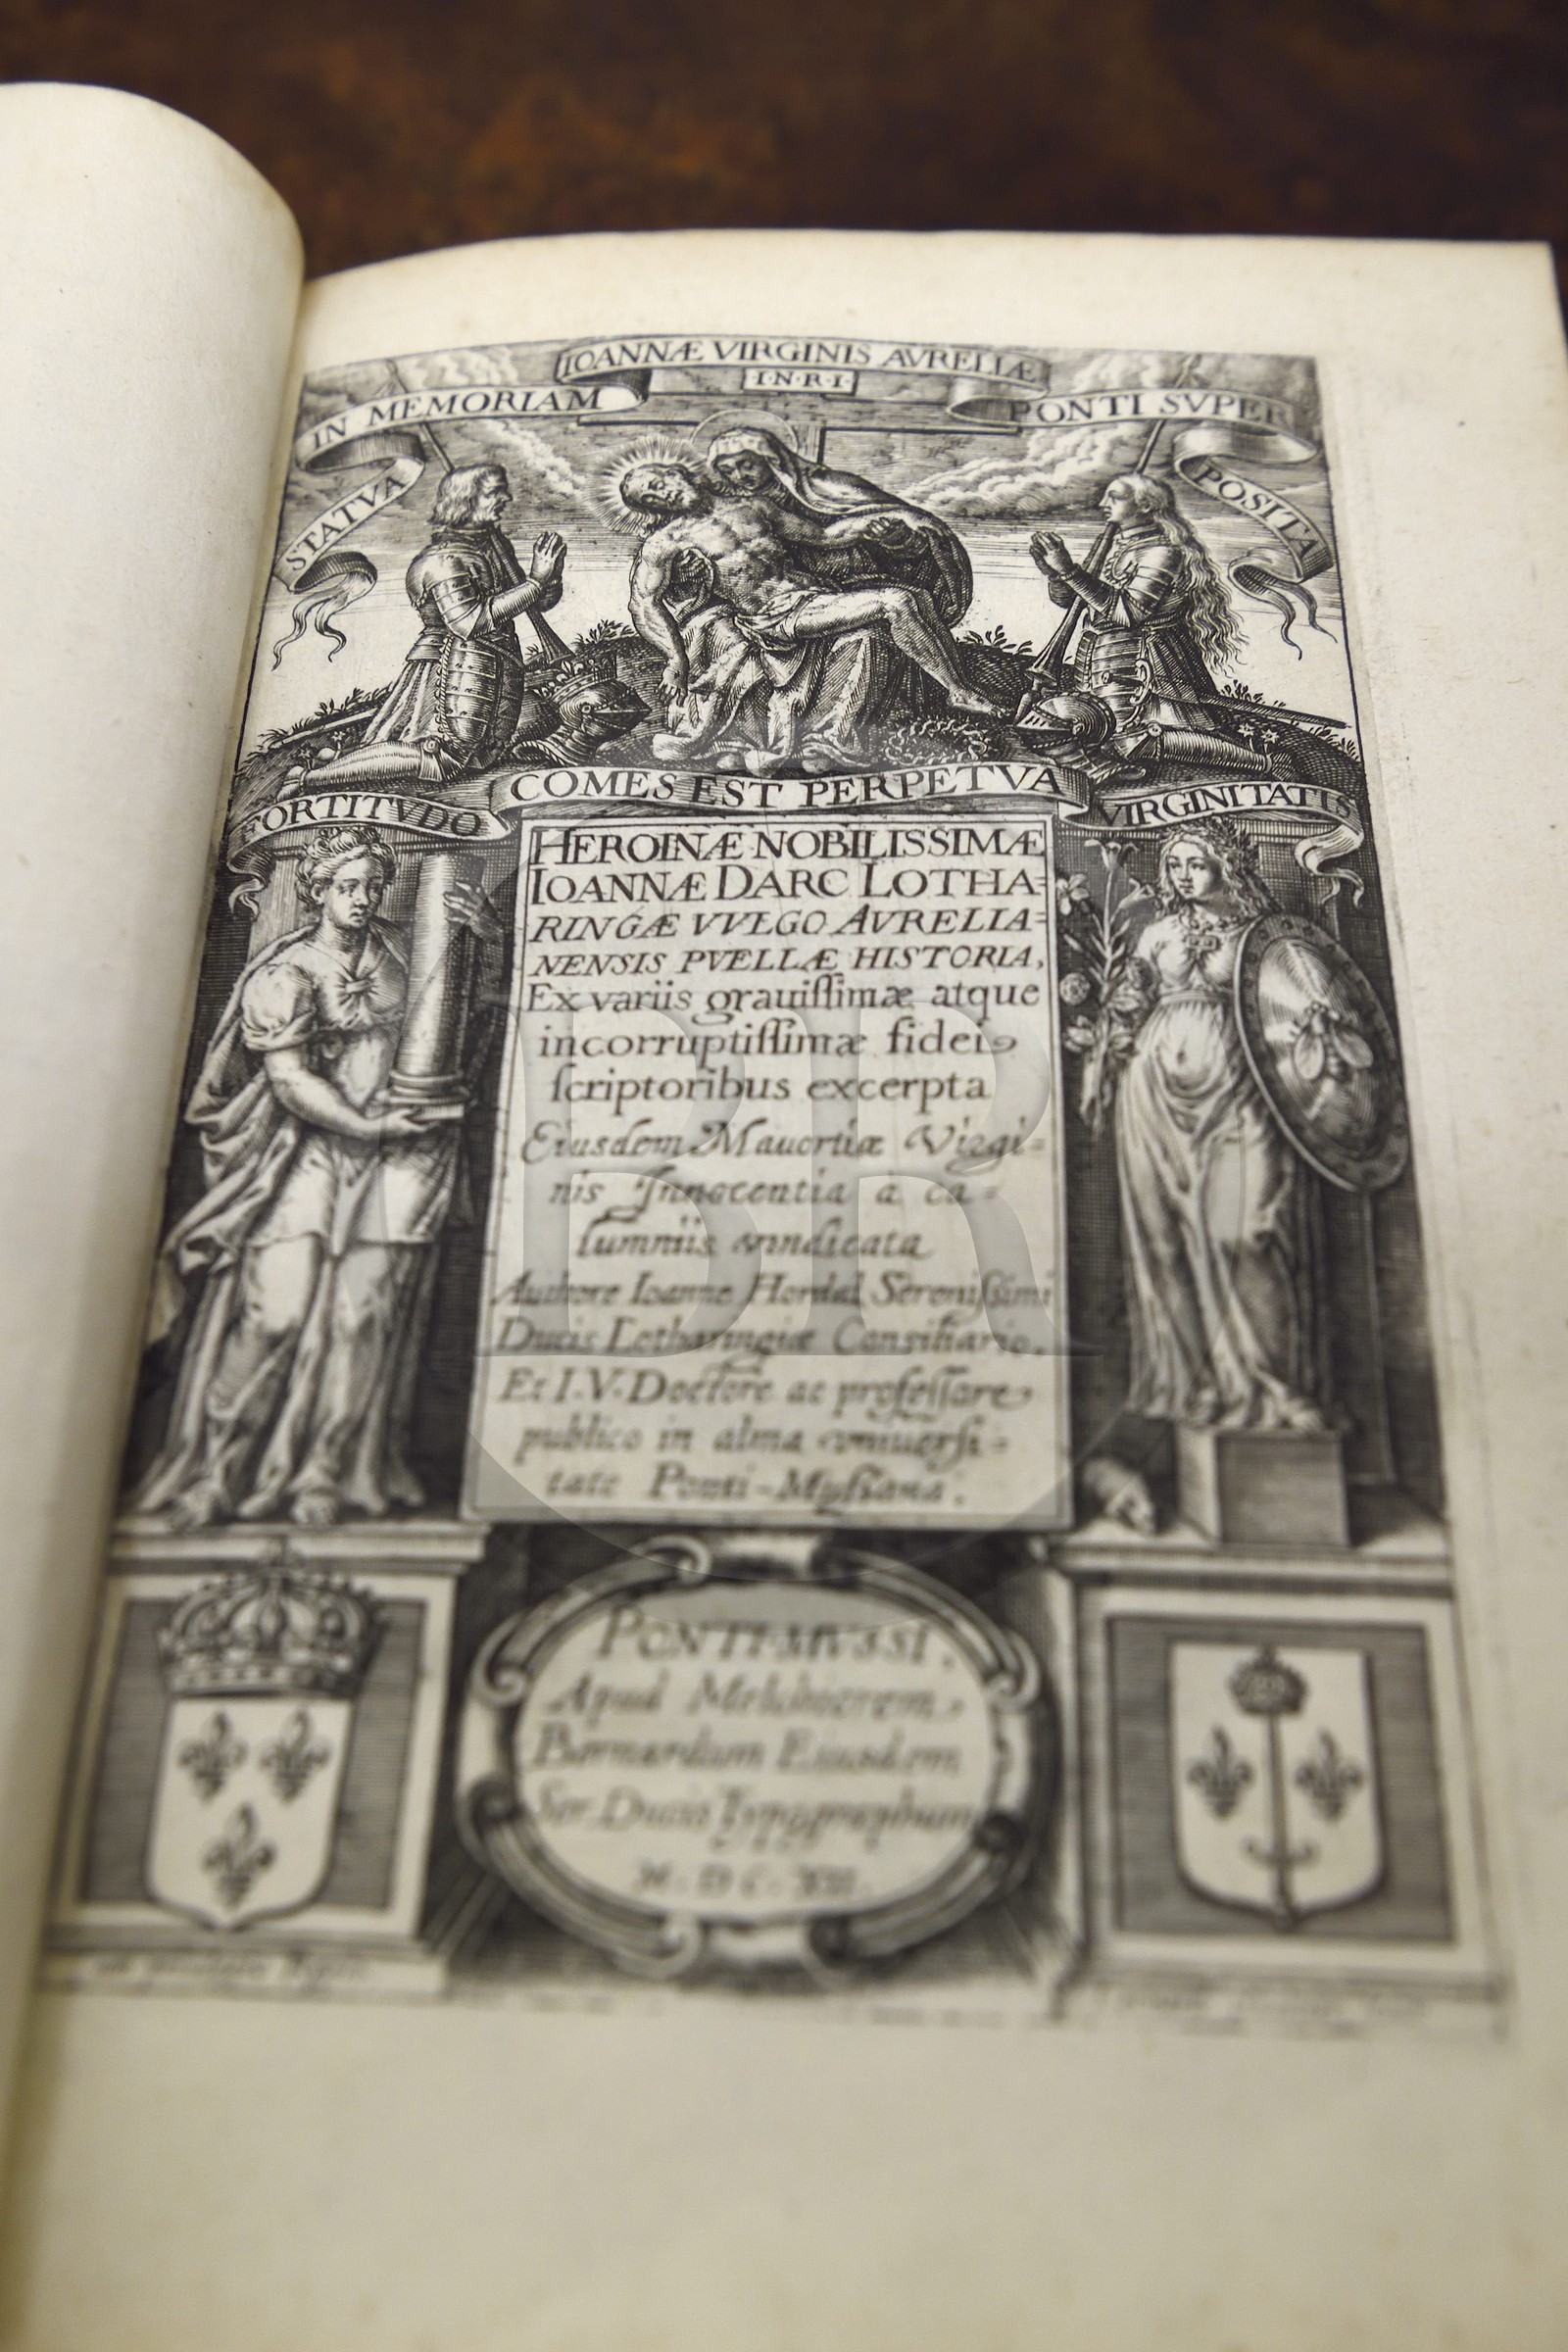 IOANNÆ VIRGINIS AVRELIÆ
I·N·R·I·
IN MEMORIAM
PONTI SVPER
STATVA
POSITA
COMES EST PERPETVA
FORTITVDO
VIRGINITATIS
HEROINÆ NOBILISSIMÆ
IOANNÆ DARC LOTHA=
RINGÆ VVLGO AVRELIA=
NENSIS PVELLÆ HISTORIA,
Ex variis grauissimæ atque
incorruptissimæ fidei
scriptoribus excerpta
Eiusdem Mauortiæ Virgi=
nis Innocentia a ca=
lumniis vindicata
Authore Ioanne Hordal Serenissimi
Ducis Lotharingiæ Consiliario.
Et I·V·Doctore ac professore
publico in alma vniuersi=
tate Ponti-Mussana.
BR
PONTI-MVSSI.
Apud Melchiorem
Bernardum Eiusdem
Ser. Ducis Typographum
M·DC·XII.